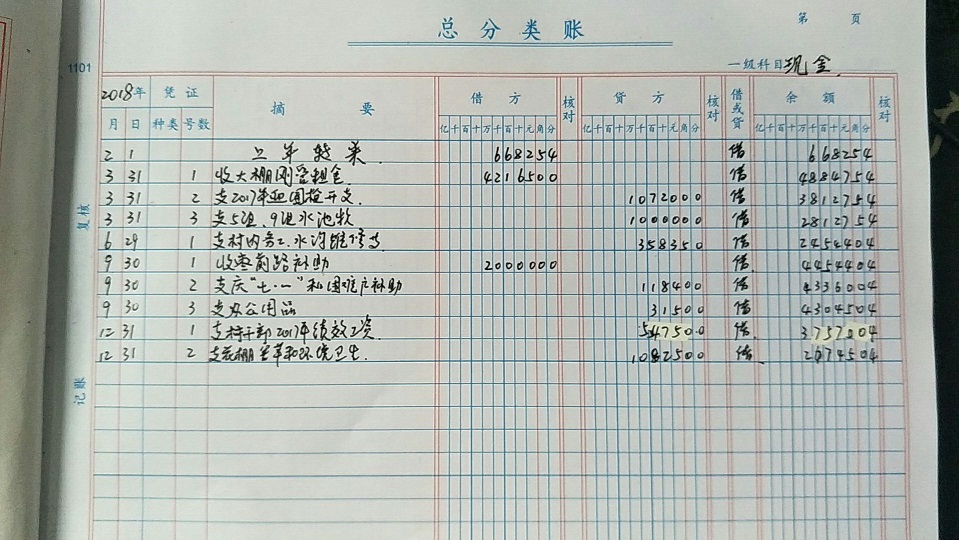 总分类账
第 页
1101
一级科目 现金
2018年 凭证 摘要 借方 核对 贷方 核对 借或贷 余额 核对
月 日 种类 号数 亿千百十万千百十元角分 亿千百十万千百十元角分 亿千百十万千百十元角分
2 1 上年转来 668254 借 668254
3 31 1 收大棚刚管租金 4216500 借 4884754
3 31 2 支2017年迎国检开支 1072000 借 3812754
3 31 3 支5组、9组水池款 1000000 借 2812754
6 29 1 支村内务工、水沟维修等 358350 借 2454404
9 30 1 收枣前路补助 2000000 借 4454404
9 30 2 支庆“七.一”和困难户补助 118400 借 4336004
9 30 3 支办公用品 31500 借 4304504
12 31 1 支村干部2017年绩效工资 547500 借 3757004
12 31 2 支花棚草和环境卫生 1082500 借 2674504
复核
记账